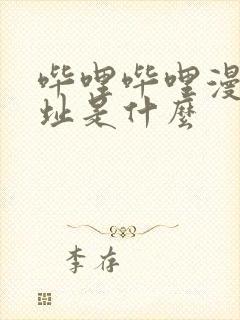 哔哩哔哩漫
址是什麽
李存